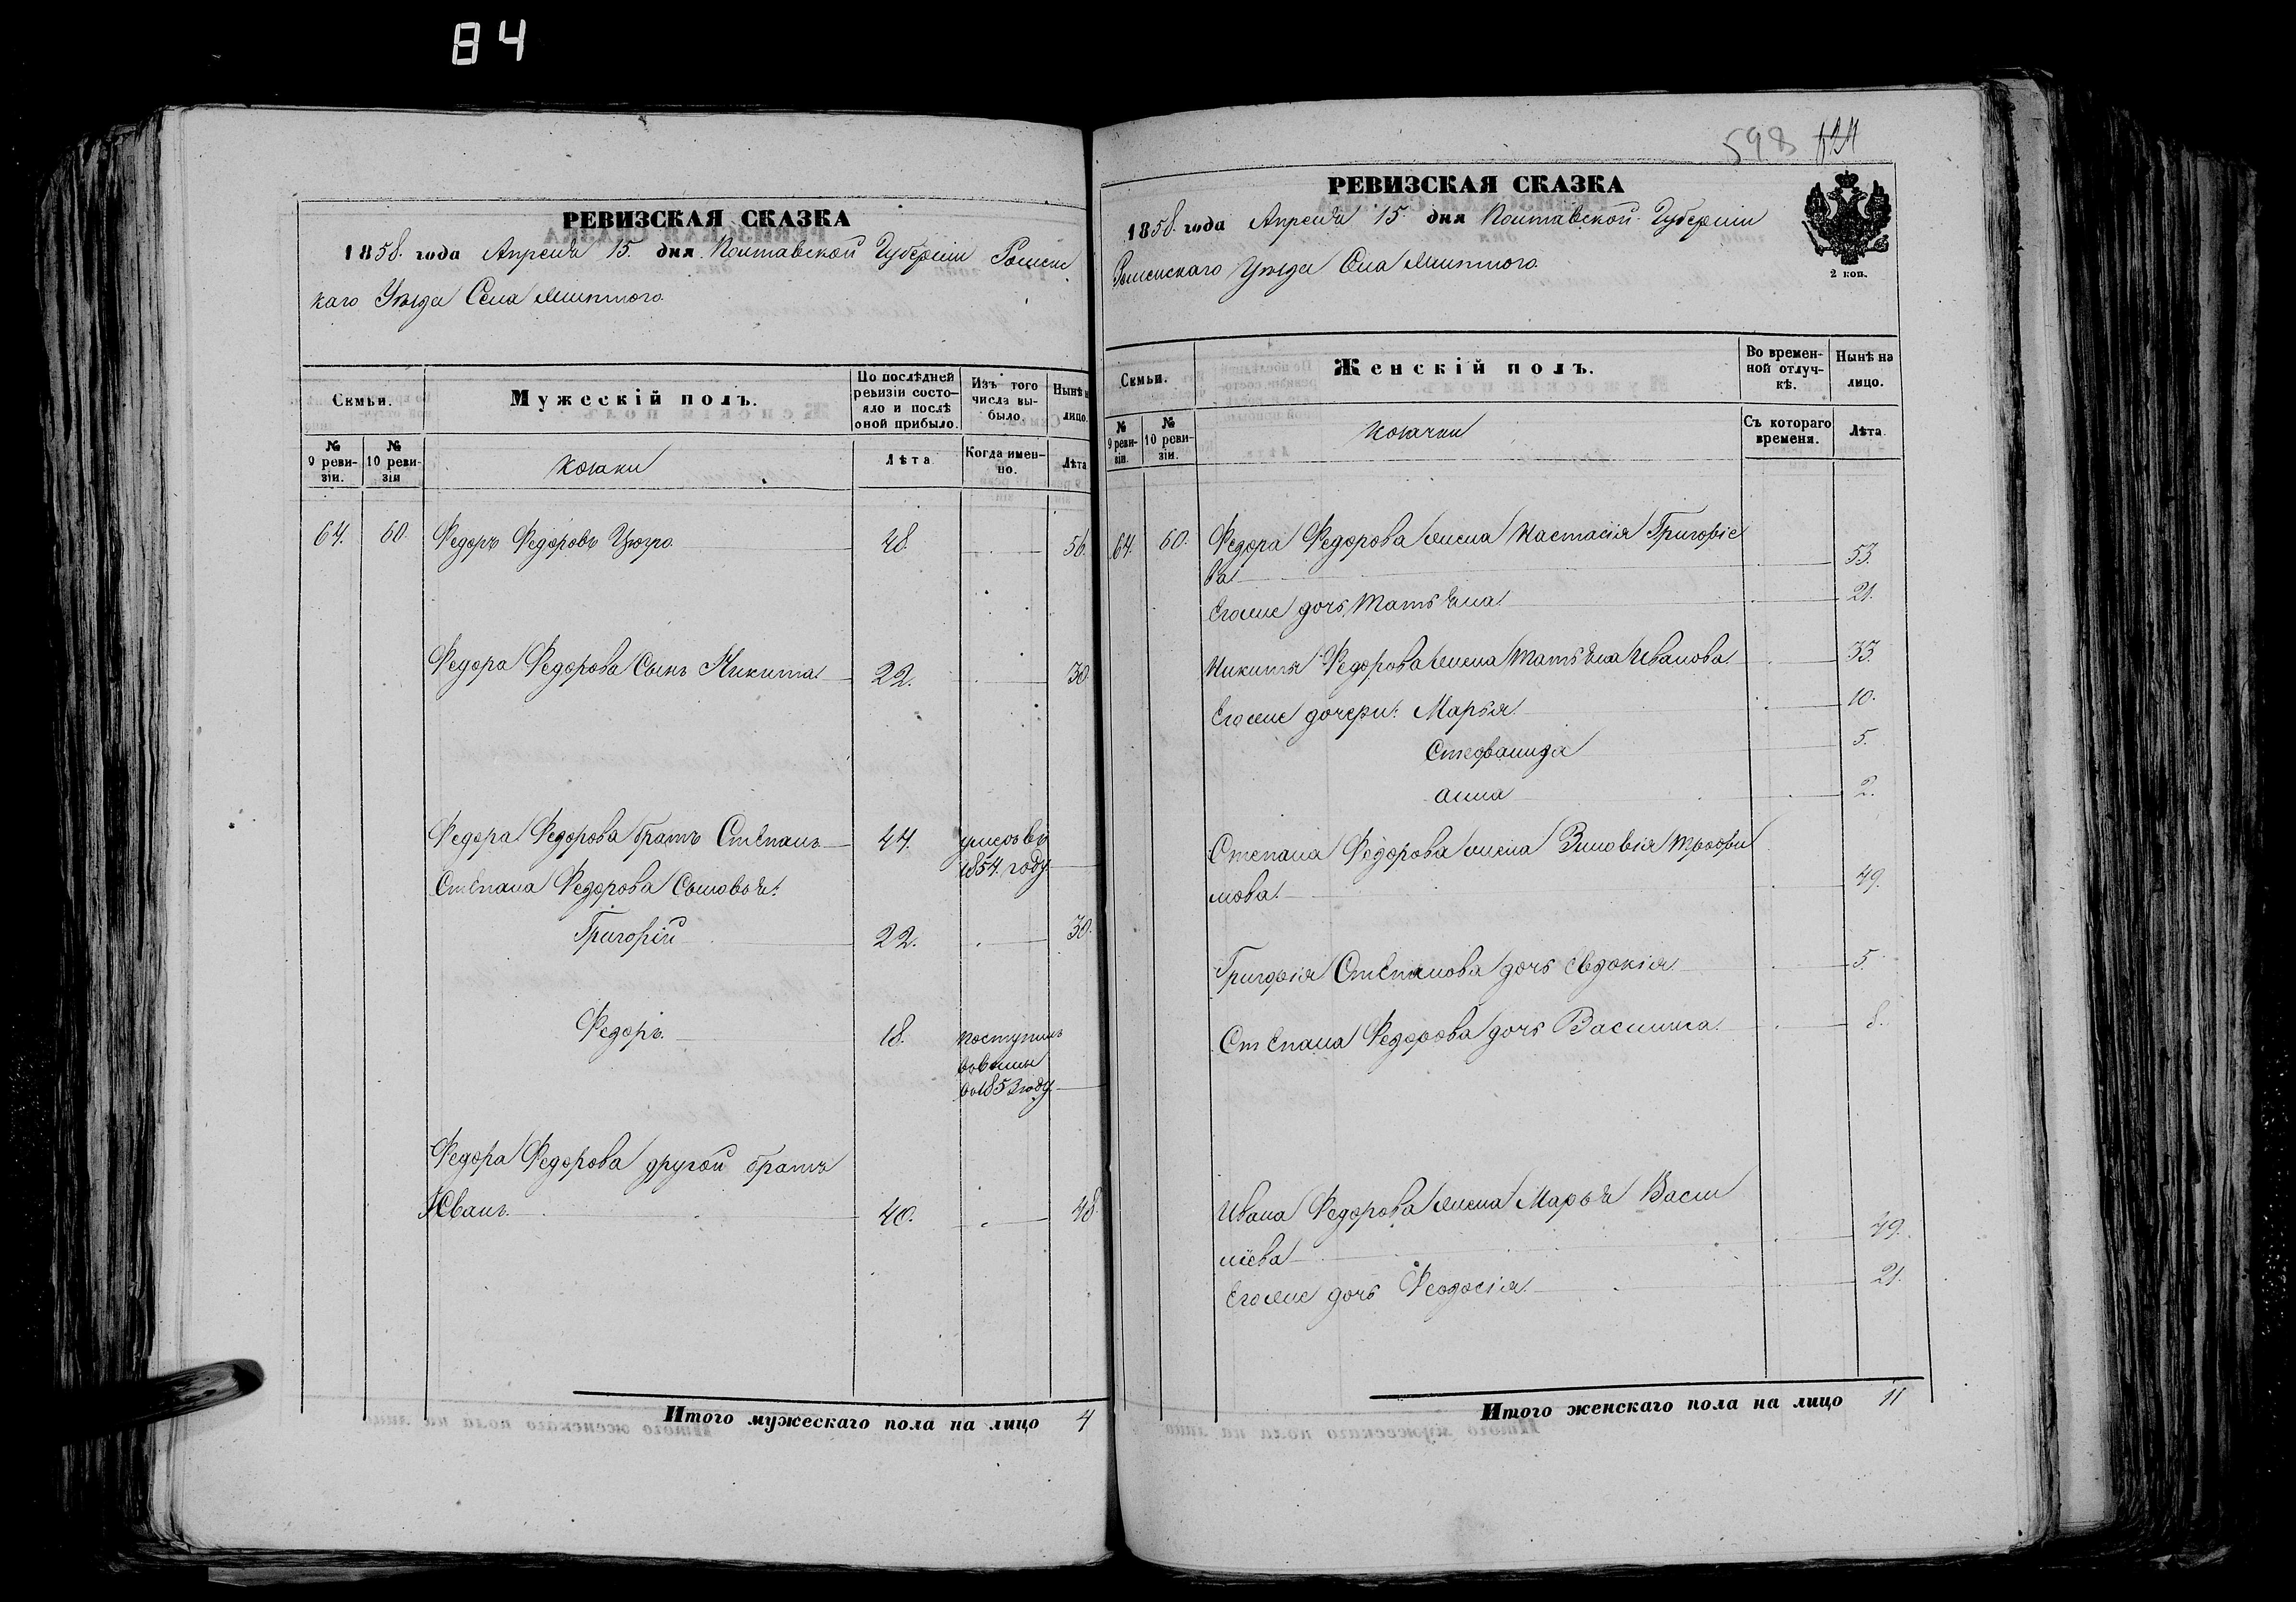 84
РЕВИЗСКАЯ СКАЗКА
1858. года Апреля 15. дня Полтавской Губерніи Роменс
каго Уѣзда Села
Семьи.
Мужескій полъ.
По послѣдней ревизіи состояло и послѣ оной прибыло.
Изъ того числа выбыло.
Нынѣ н лицо.
№ 9 ревизіи.
№ 10 ревизіи
козаки
Лѣта
Когда именно.
Лѣта
64. 60. Федоръ Федоровъ 48. 56.
Федора Федорова Сынъ Никита 22. 30.
Федора Федорова братъ Степанъ 44. умеръ въ
1854. году
Степана Федорова Сыновья:
Григорій 22. 30.
Федоръ. 18. поступилъ
во
въ 1853 году
Федора Федорова другой братъ
Иванъ. 40. 48.
Итого мужескаго пола на лицо 4
598 624
РЕВИЗСКАЯ СКАЗКА
1858. года Апреля 15. дня Полтавской Губерніи
Роменскаго Уѣзда Села
2 коп.
Семьи.
Женскій полъ.
Во временной отлучкѣ.
Нынѣ на лицо.
№ 9 ревизіи.
№ 10 ревизіи.
козачки
Съ котораго времени.
Лѣта
64. 60. Федора Федорова жена Настасія Григоріе
ва 53.
Егоже дочь Татьяна 21.
Никиты Федорова жена Татьяна Иванова 33.
Егоже дочери: Марья 10.
Стефанида 5.
Анна 2.
Степана Федорова жена Зиновія Трофи
мова 49.
Григорія Степанова дочь Евдокія 5.
Степана Федорова дочь Василиса 8.
Ивана Федорова жена Марья Васи
лїева 49.
Егоже дочь Феодосія 21.
Итого женскаго пола на лицо 11